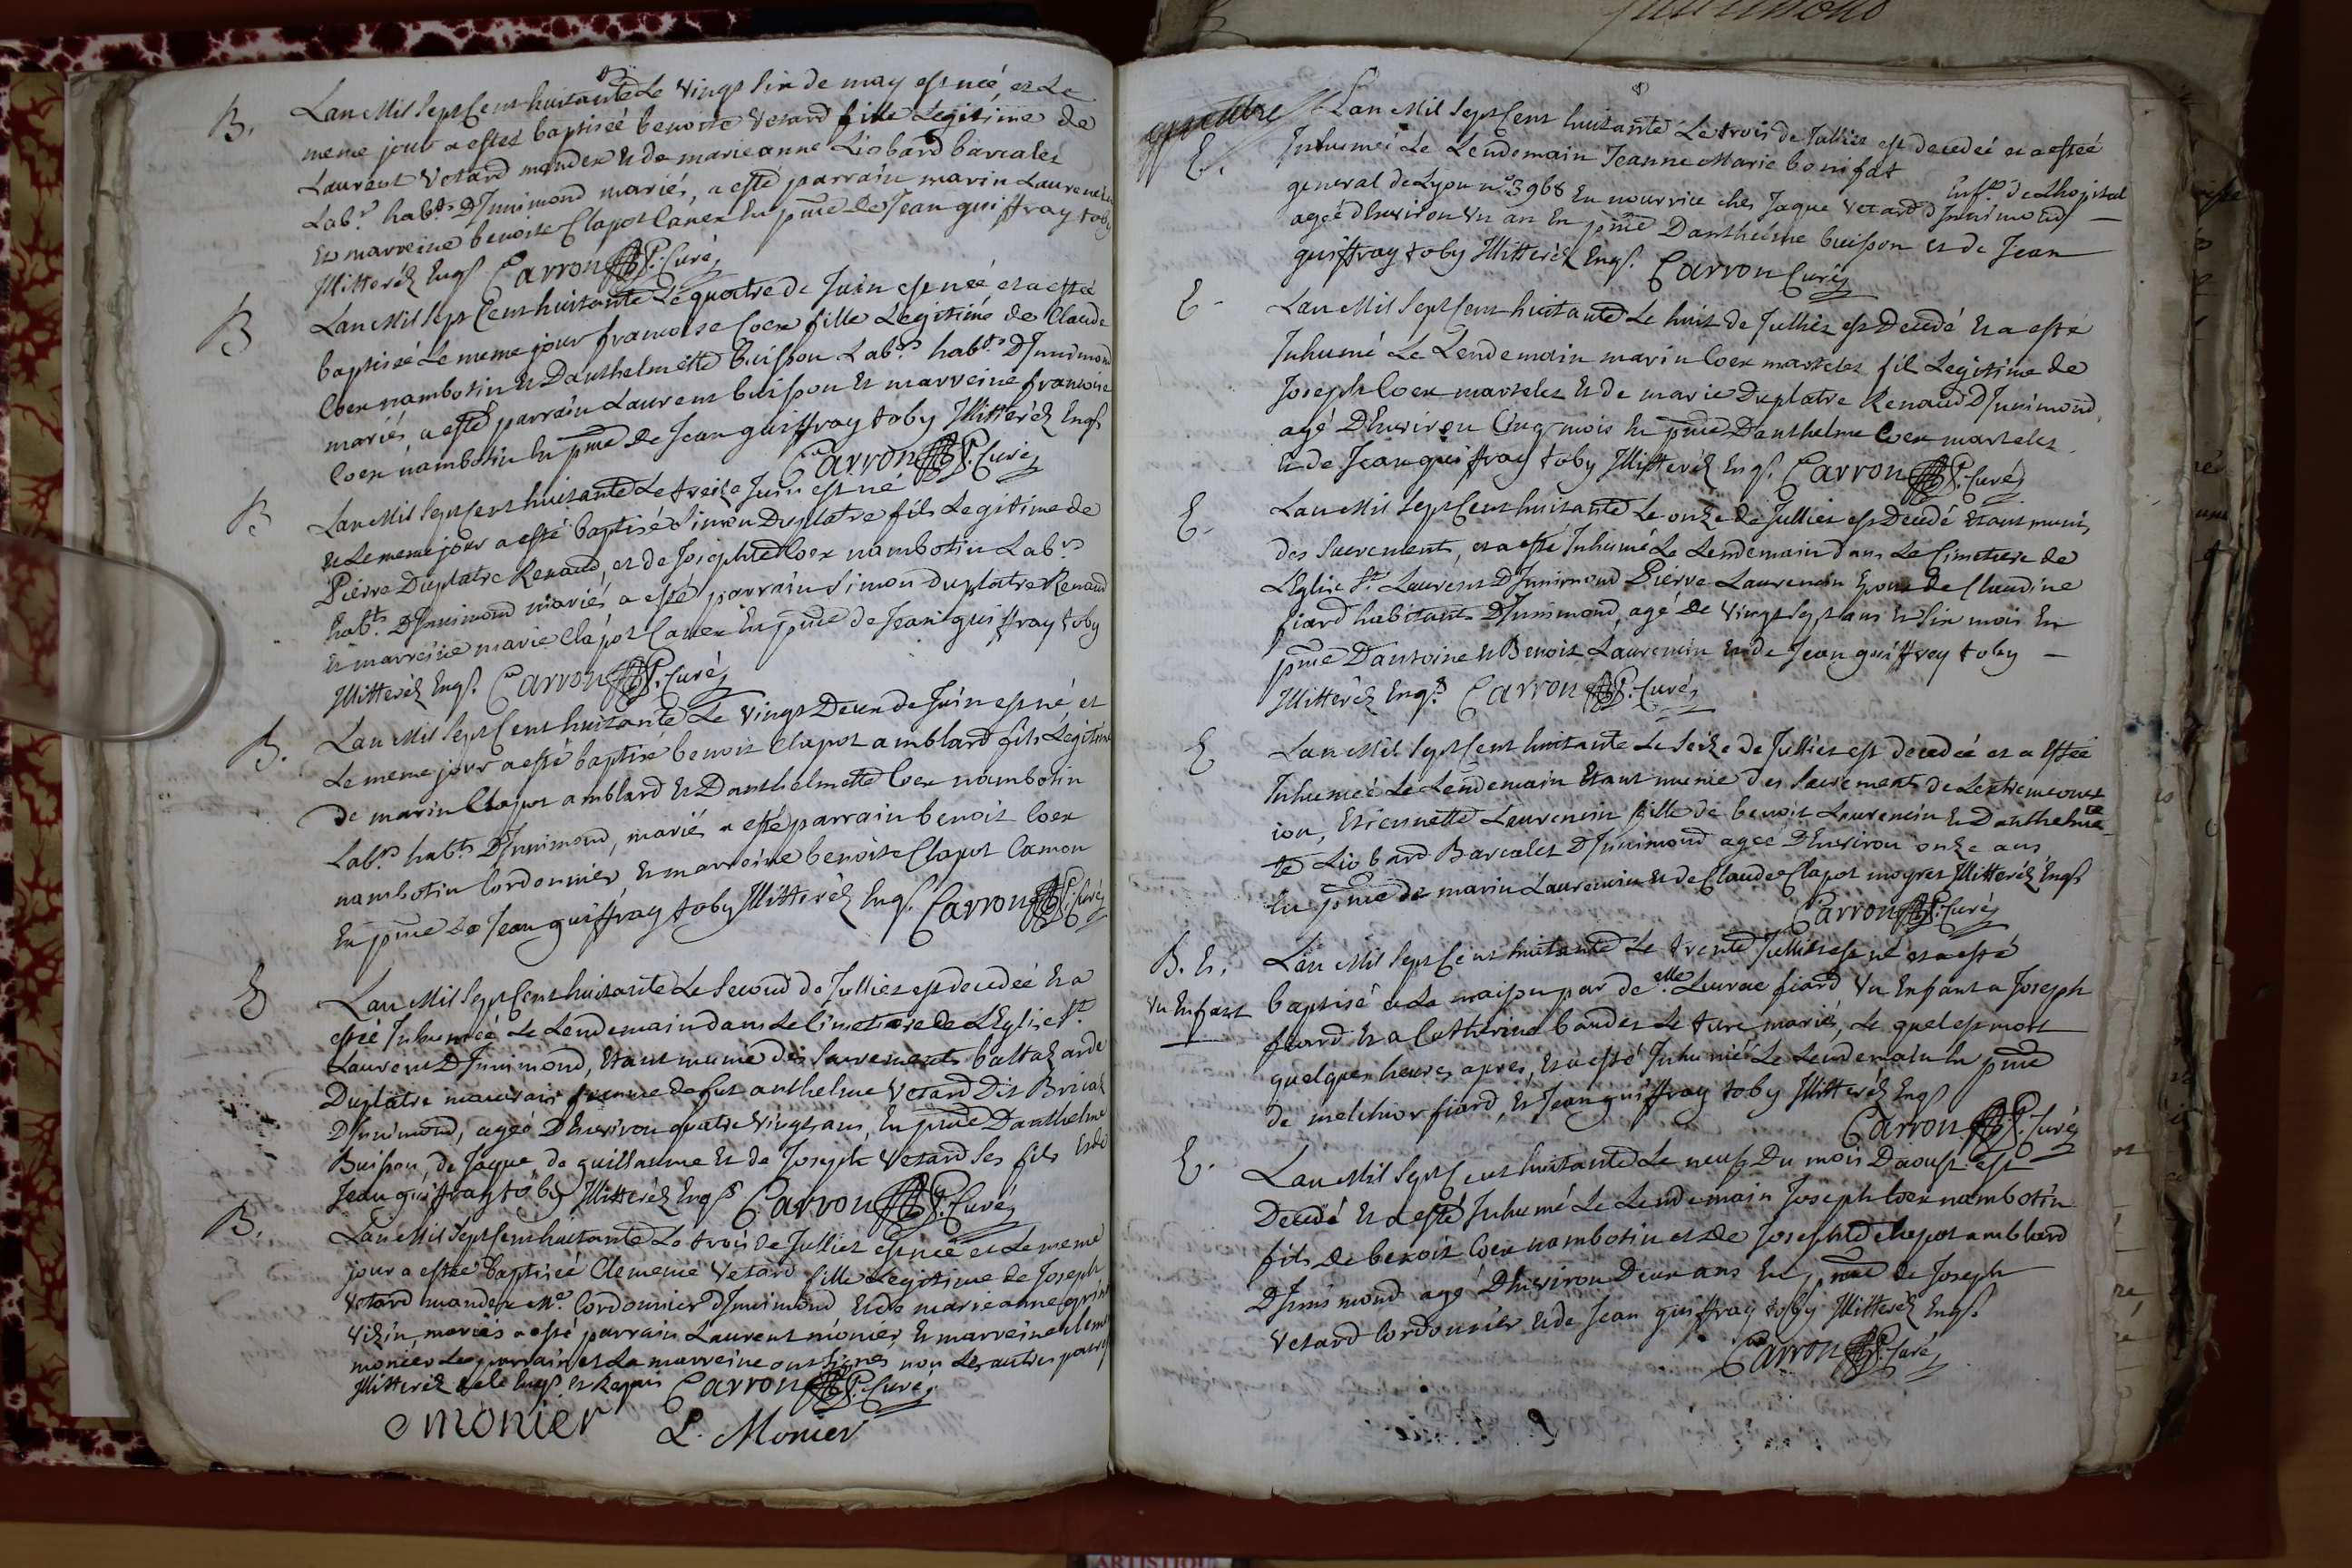 B. Lan Mil sept Cent huitante Le vingt six de may est neé, et Le
meme jour a esteé baptiseé benoite vetard fille Legitime de
Laurent vetard mandex et de marieanne Liobard barcalet
Lab.rs hab.ts D'Innimond mariés, a esté parrain marin Laurencin
et marreine benoite Clapot Canex En pnce de Jean guiffray toby
Illitteréz Enqs. Carron P. Curé
B Lan Mil sept Cent huitante Le quatre de Juin est neé et a esteé
baptiseé Le meme jour francoise Coex fille Legitime de Claude
Coex nambotin et Danthelmette Buisson Lab.rs hab.ts D'Innimond
mariés, a esté parrain Laurent buisson et marreine francoise
Coex nambotin En pnce de Jean guiffray toby Illitteréz Enqs
Carron P. Curé
B Lan Mil sept Cent huitante Le treize Juin est né
et Le meme jour a esté baptisé Simon Duplatre fils Legitime de
Pierre Duplatre Renaud, et de Josephte Coex nambotin Lab.rs
hab.ts D'Innimond mariés a esté parrain Simon Duplatre Renaud
et marreine marie Clapot Canex En pnce de Jean guiffray toby
Illitteréz Enqs. Carron P. Curé
B. Lan Mil sept Cent huitante Le vingt Deux de Juin est né, et
Le meme jour a esté baptisé benoit Clapot amblard fils Légitime
de marin Clapot amblard et Danthelmette Coex nambotin
Lab.rs hab.ts D'Innimond, mariés a esté parrain benoit Coex
nambotin Cordonnier et marreine benoite Clapot Camon
En pnce de Jean guiffray toby Illitteréz Enqs. Carron P. Curé
E Lan Mil sept Cent huitante Le second de Julliet est decedeé et a
esteé Inhumeé Le Lendemain dans Le Cimetiere de L'Eglise St.
Laurent D'Innimond, etant munie des sacrements baltazarde
Duplatre mauvais femme de fut anthelme vetard Dit Brical
D'Innimond, ageé D'Environ quatre vingt ans, En pnce Danthelme
Buisson, de Jaque, de guillaume et de Joseph vetard ses fils et de
Jean guiffray toby Illitteréz Enqs Carron P. Curé
B. Lan Mil sept Cent huitante Le trois de Julliet est neé et Le meme
jour a esteé baptiseé Clemence vetard fille Legitime de Joseph
vetard mandex Me. Cordonnier D'Innimond et de marieanne
vizin, mariés a esté parrain Laurent monier, et marreine
monier Le parrain et La marreine ont signés non Les autres pour
Illitteréz de ce Enqs. et Requis Carron P. Curé
Cmonier L. Monier
Lan Mil sept Cent huitante Le trois de Julliet est decedeé et a esteé
E. Inhumeé Le Lendemain Jeanne Marie bonifat Enft. de L'hopital
general de Lyon n.o 3968 En nourrice chez Jaque vetard D'Innimond
ageé d'Environ un an En pnce Danthelme buisson et de Jean
guiffray toby Illitteréz Enqs. Carron Curé
E Lan Mil sept Cent huitante Le huit de Julliet est Decedé et a esté
Inhumé Le Lendemain marin Coex martelet fil Legitime de
Joseph Coex martelet et de marie Duplatre Renaud D'Innimond
agé D'Environ Cinq mois En pnce Danthelme Coex martelet
et de Jean guiffray toby Illitteréz Enqs. Carron P. Curé
E. Lan Mil sept Cent huitante Le onze de Julliet est Decedé etant munis
des sacrements, et a esté Inhumé Le Lendemain dans Le Cimetiere de
L'Eglise St. Laurent D'Innimond Pierre Laurencin Epoux de Claudine
fiard habitants D'Innimond, agé de vingt sept ans et six mois En
pnce Dantoine et Benoit Laurencin et de Jean guiffrey toby
Illitteréz Enqs. Carron P. Curé
E Lan Mil sept Cent huitante Le seize de Julliet est decedeé et a esteé
Inhumeé Le Lendemain etant munie des sacrements de Lextremeonct
ion, Etiennette Laurencin fille de benoit Laurencin et Danthelme
te Liobard Barcalet D'Innimond ageé D'Environ onze ans,
En pnce de marin Laurencin et de Claude Clapot moyret Illitteréz Enqs
Carron P. Curé
B. E. Lan Mil sept Cent huitante Le trente Julliet est né et a esté
un Enfant baptisé a La maison par de.elle Lucrece fiard un Enfant a Joseph
fiard et a Catherine baudet Le turc mariés, Le quel est mort
quelques heures apres, et a esté Inhumé Le Lendemain En pnce
de melchior fiard, et Jean guiffray toby Illitteréz Enqs
Carron P. Curé
E. Lan Mil sept Cent huitante Le neuf Du mois Daoust est
Decedé et a esté Inhumé Le Lendemain Joseph Coex nambotin
fils de benoit Coex nambotin et de Josephte Clapot amblard
D'Innimond agé D'Environ Deux ans En pnce de Joseph
vetard Cordonnier et de Jean guiffray toby Illitteréz Enqs.
Carron P. Curé
ARTISTIQUE